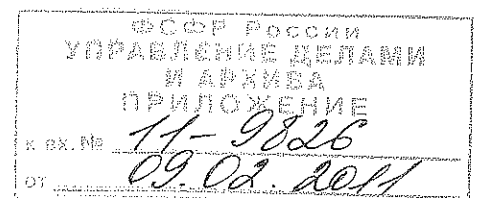 ФСФР России
УПРАВЛЕНИЕ ДЕЛАМИ
И АРХИВА
ПРИЛОЖЕНИЕ
к вх. № 11-9826
от 09.02.2011